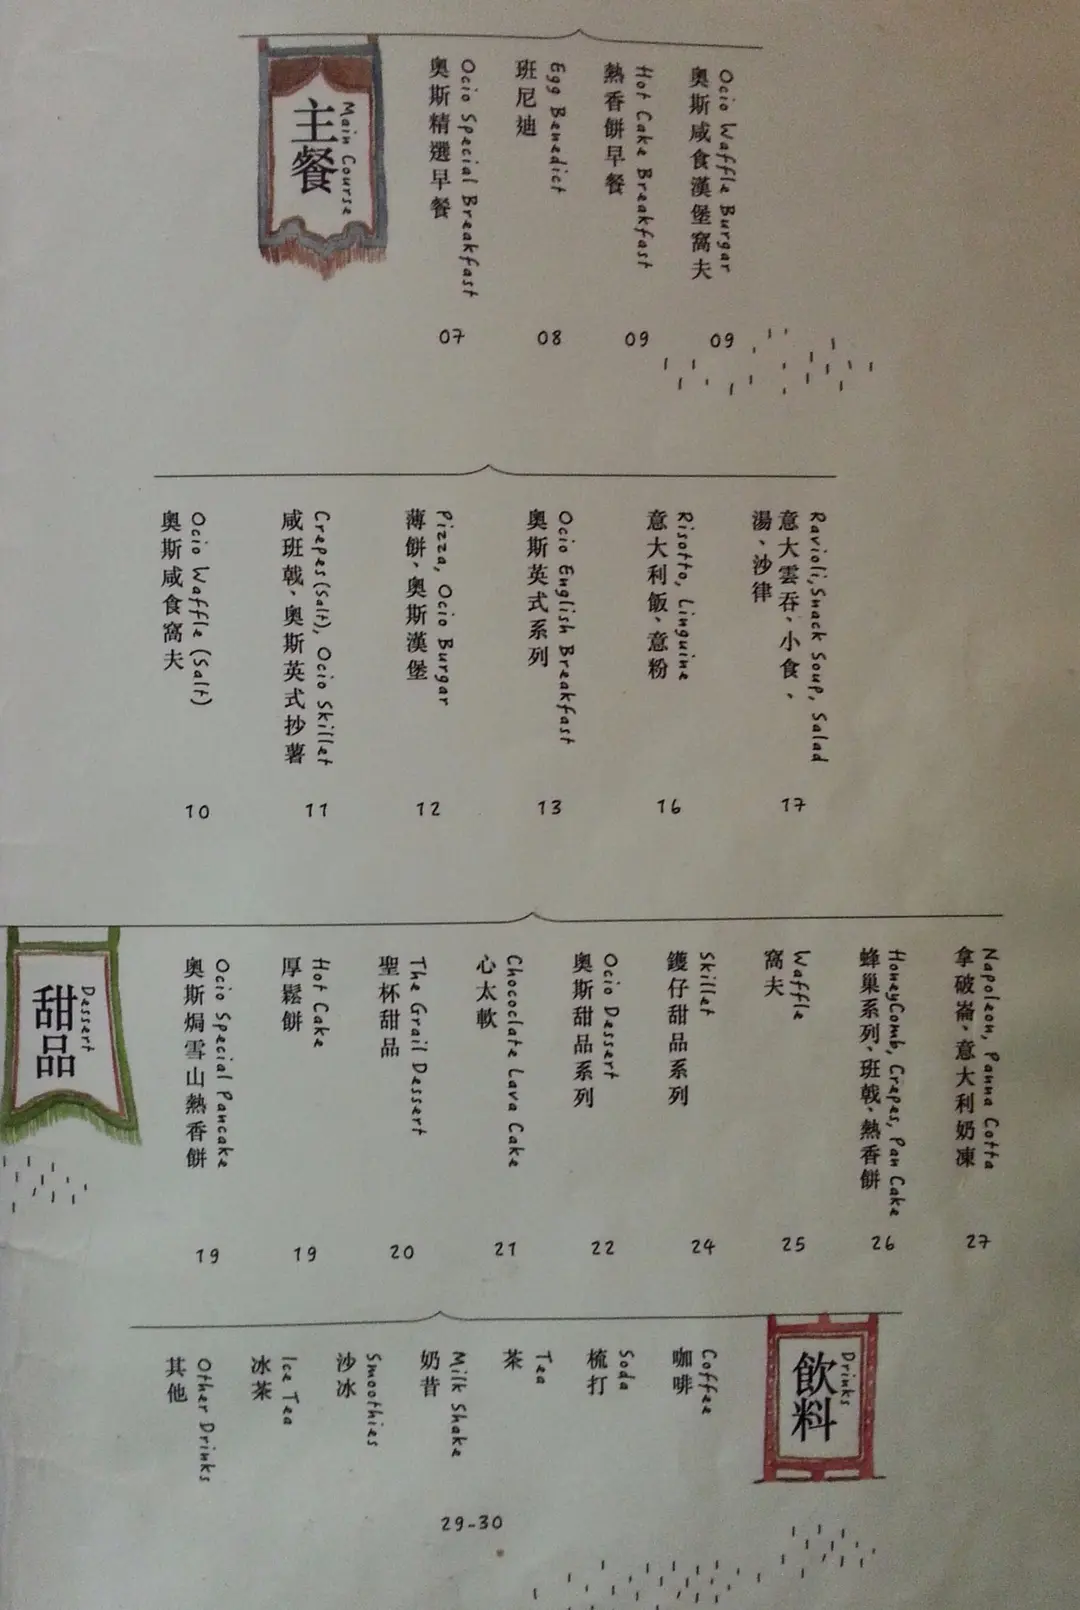 主餐
Main Course
Ocio Special Breakfast
奧斯精選早餐
07
Egg Benedict
班尼迪
08
Hot Cake Breakfast
熱香餅早餐
09
Ocio Waffle Burgar
奧斯咸食漢堡窩夫
09
Ocio Waffle (Salt)
奧斯咸食窩夫
10
Crepes (Salt), Ocio Skillet
咸班戟、奧斯英式抄薯
11
Pizza, Ocio Burgar
薄餅、奧斯漢堡
12
Ocio English Breakfast
奧斯英式系列
13
Risotto, Linguine
意大利飯、意粉
16
Ravioli, Snack Soup, Salad
意大雲吞、小食、
湯、沙律
17
甜品
Dessert
Ocio Special Pancake
奧斯焗雪山熱香餅
19
Hot Cake
厚鬆餅
19
The Grail Dessert
聖杯甜品
20
Chococlate Lava Cake
心太軟
21
Ocio Dessert
奧斯甜品系列
22
Skillet
鑊仔甜品系列
24
Waffle
窩夫
25
HoneyComb, Crepes, Pan Cake
蜂巢系列、班戟、熱香餅
26
Napoleon, Panna Cotta
拿破崙、意大利奶凍
27
飲料
Drinks
Coffee
咖啡
Soda
梳打
Tea
茶
Milk Shake
奶昔
Smoothies
沙冰
Ice Tea
冰茶
Other Drinks
其他
29-30